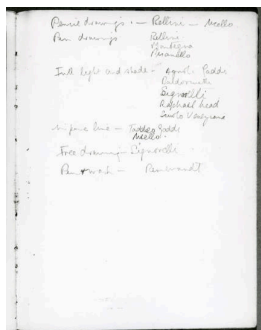 Pencil drawings :— Bellini — Uccello
Pen drawings Bellini
Mantegna
Pisanello
Ink light and shade — Agnolo Gaddi
Baldovinetti
Signorelli
Raphael head
Veneziano
in pure line — Taddeo Gaddi
Uccello
Free drawing — Signorelli
Pen & wash — Rembrandt